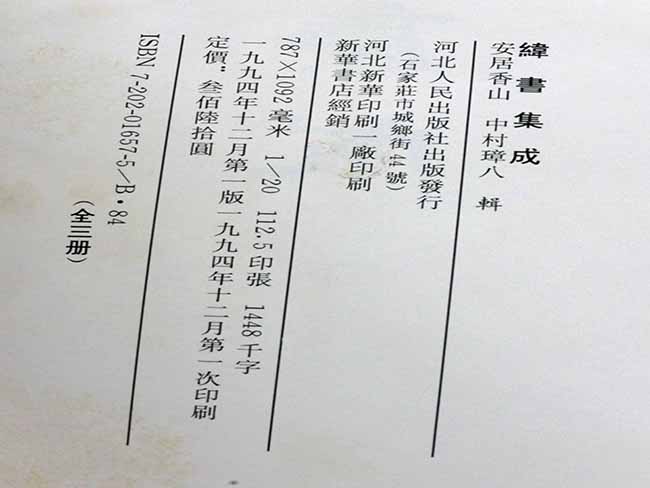 緯書集成
安居香山 中村璋八 輯
河北人民出版社出版發行
(石家莊市城鄉街44號)
河北新華印刷一廠印刷
新華書店經銷
787×1092毫米 1/20 112.5印張 1448千字
一九九四年十二月第一版一九九四年十二月第一次印刷
定價：叁佰陸拾圓
ISBN 7-202-01657-5/B·84
(全三册)